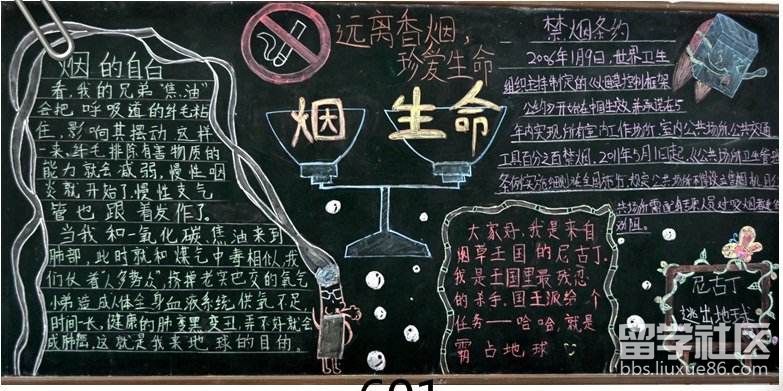 烟的自白
看,我的兄弟“焦油”
会把呼吸道的纤毛粘
住,影响其摆动这样
一来,纤毛排除有害物质的
能力就会减弱,慢性咽
炎就开始了,慢性支气
管也跟着发作了。
当我和一氧化碳焦油来到
肺部,此时就和煤气中毒相似,我
们仗着“人多势众”,挤掉老实巴交的氧气
小弟造成人体全身血液系统供氧不足,
时间一长,健康的肺变黑变丑,弄不好就会
成肺癌,这就是我来地球的目的。
远离香烟,
珍爱生命
烟 生命
禁烟条约
2006年1月9日,世界卫生
组织主持制定的《烟草控制框架
公约》开始在中国生效并承诺在5
年内实现所有室内工作场所,室内公共场所,公共交通
工具百分之百禁烟,2011年5月1日起,《公共场所卫生管理
大家好,我是来自
烟草王国的尼古丁.
我是王国里最残忍
的杀手,国王派给个
任务——哈哈,就是
霸占地球
尼古丁
逃出地球
留学社区
bbs.liuxue86.com
601